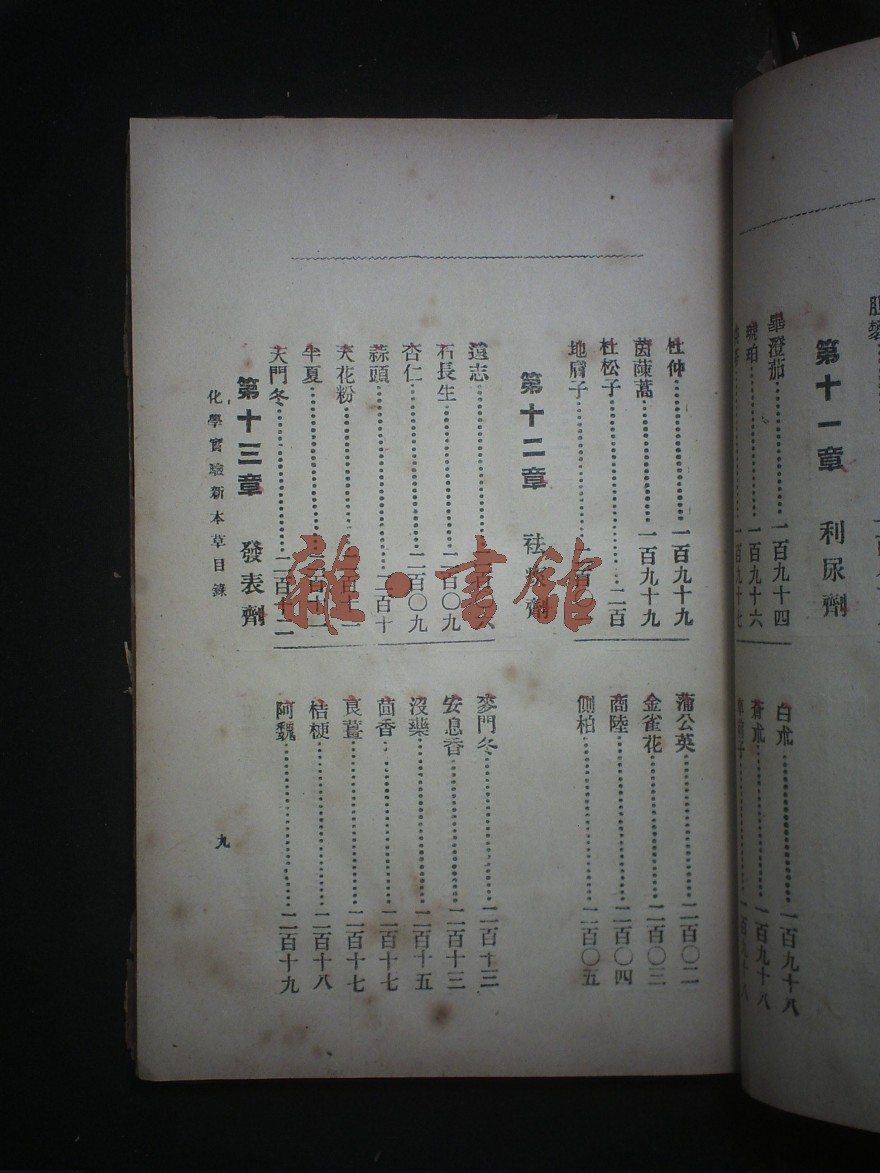 第十一章 利尿劑
畢澄茄 一百九十四
琥珀 一百九十六
一百九十七
白朮 一百九十八
蒼朮 一百九十八
杜仲 一百九十九
茵蔯蒿 一百九十九
杜松子 二百
地膚子
蒲公英 二百〇二
金雀花 二百〇三
商陸 二百〇四
側柏 二百〇五
第十二章 祛痰劑
遠志
石長生 二百〇九
杏仁 二百〇九
蒜頭 二百十
天花粉
半夏
天門冬 二百十二
麥門冬 二百十三
安息香 二百十三
沒藥 二百十五
茴香 二百十七
良薑 二百十七
桔梗 二百十八
阿魏 二百十九
第十三章 發表劑
化學實驗新本草目錄
九
雜·書館